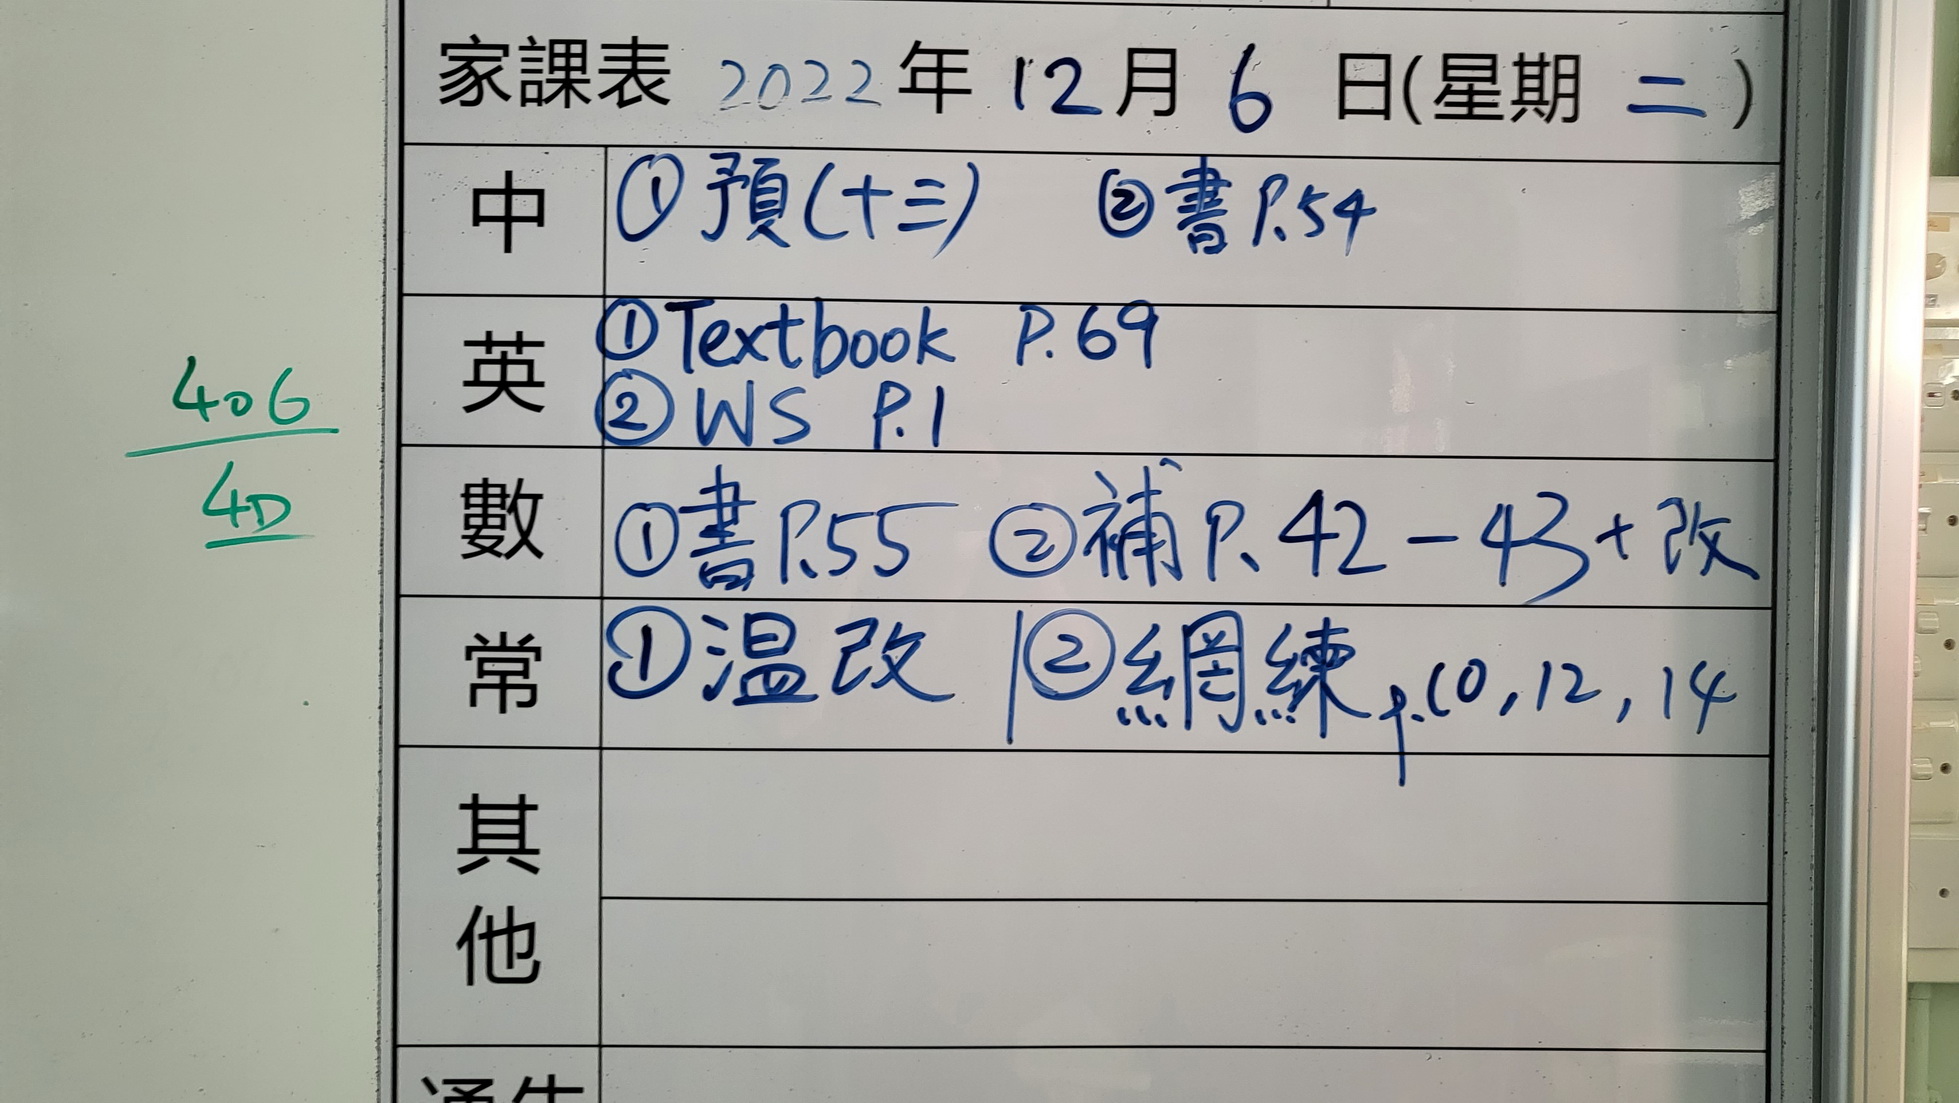 家課表 2022年 12月 6 日(星期 二 )
中 ①預(十三) ②書P.54
英 ①Textbook P.69
②WS P.1
數 ①書P.55 ②補P.42-43+改
常 ①温改 | ②網練p.10,12,14
其他
通告
406
4D